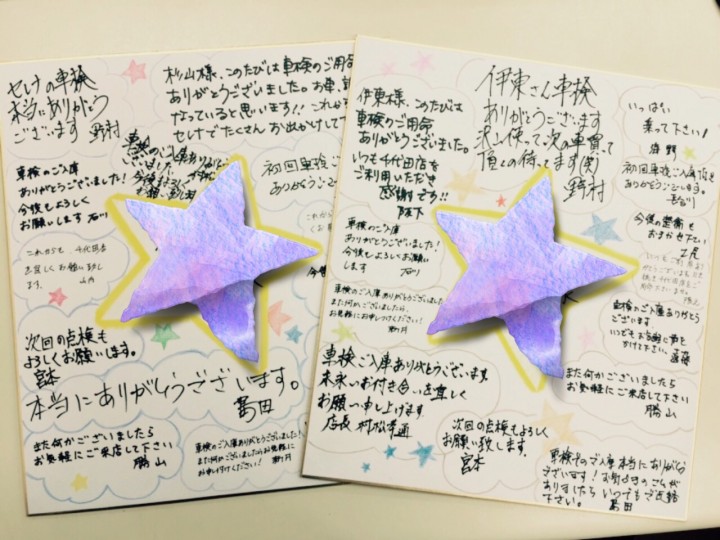 セレナの車検
本当にありがとう
ございます 野村
杉山様、このたびは車検のご用命
ありがとうございました。お車、
なっていると思います!! これから
セレナでたくさん お出かけして下
車検のご入庫
ありがとうございました!
今後もよろしく
お願いします 石川
初回車検ご入
ありがとうござ
これからも 千代田店
を宜しくお願い致し
ます。
次回の点検も
よろしくお願いします。
宮本
本当にありがとうございます。
葛田
また何かございましたら
お気軽にご来店して下さい
勝山
車検のご入庫ありがとうございました!
また何かございましたらお気軽に
お申し付けください!
伊東様、このたびは
車検のご用命
ありがとうございました。
いつも千代田店を
ご利用いただき
感謝です!!
伊東さん車検
ありがとうございます
沢山使って次の車買って
頂くの待ってます(笑)
野村
いっぱい
乗って下さい!
海野
初回車検ご入庫頂き
ありがとうございます。
長谷川
今後の整備も
おまかせ下さい
車検のご入庫
ありがとうございました!
今後もよろしくお願い
します 石川
車検のご入庫ありがとうございました
また何かございましたら、
お気軽にお申しつけください!
車検のご入庫ありがとう
ございます
いつでもお気軽に声を
かけて下さい。遠藤
車検ご入庫ありがとうございます。
末永いお付き合いを宜しく
お願い申し上げます。
店長 村松
次回の点検もよろしく
お願い致します。
宮本
また何かございましたら
お気軽にご来店して下さい
勝山
車検でのご入庫 本当にありがとう
ございます!
ありましたら いつでもご連絡
下さい。 葛田